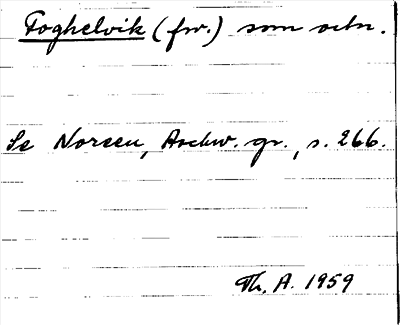 Foghelvik (fsv.) som ortn.
Se Noreen, Aschw. gr., s. 266.
Th. A. 1959